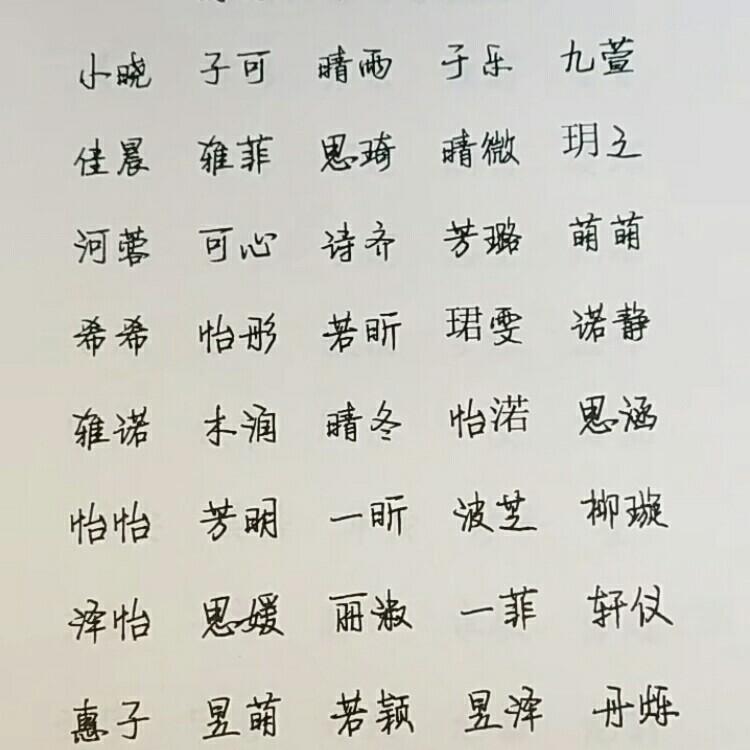 小晓 子可 晴雨 于乐 九萱
佳晨 雅菲 思琦 晴微 玥之
河蓉 可心 诗齐 芳璐 萌萌
希希 怡彤 若昕 珺雯 诺静
雅诺 木润 晴冬 怡渃 思涵
怡怡 芳明 一昕 波芝 柳璇
泽怡 思媛 丽淑 一菲 轩仪
惠子 昱萌 若颖 昱泽 丹烁